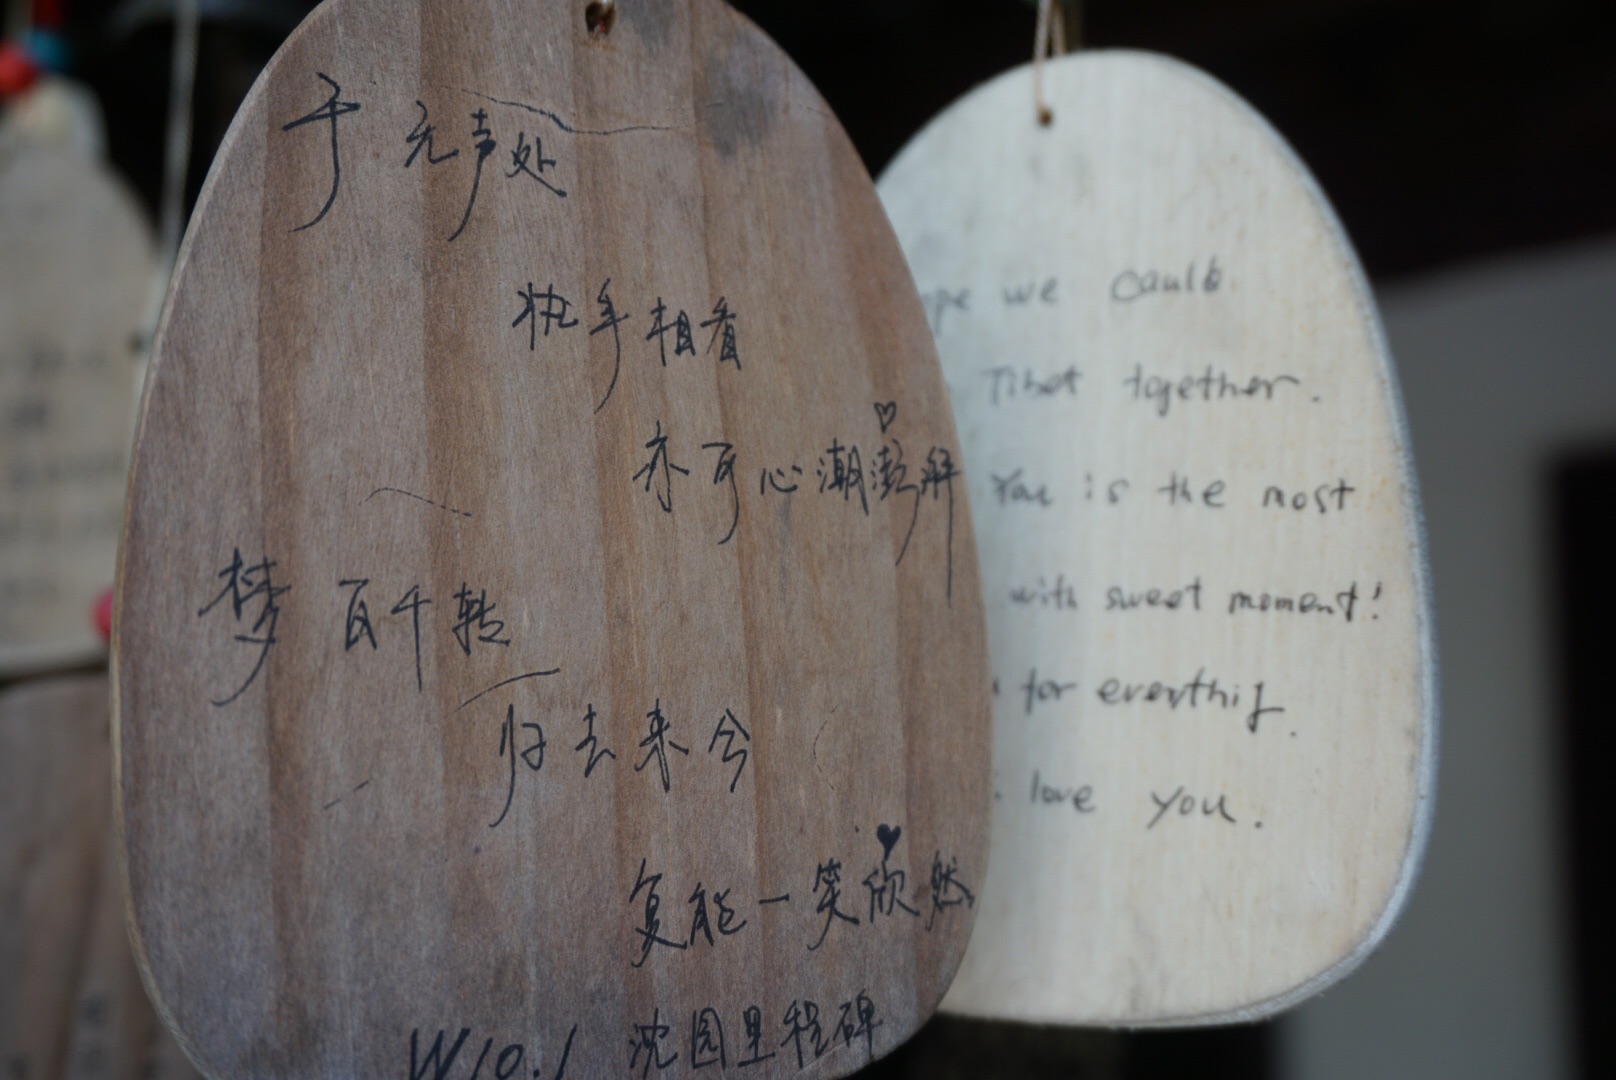 于无声处
执手相看
亦可心潮澎湃
梦百千转
归去来兮
复能一笑欣然
W10.1 沈园里程碑
we could
Tibet together.
You is the most
with sweet moment!
for everthig.
love you.